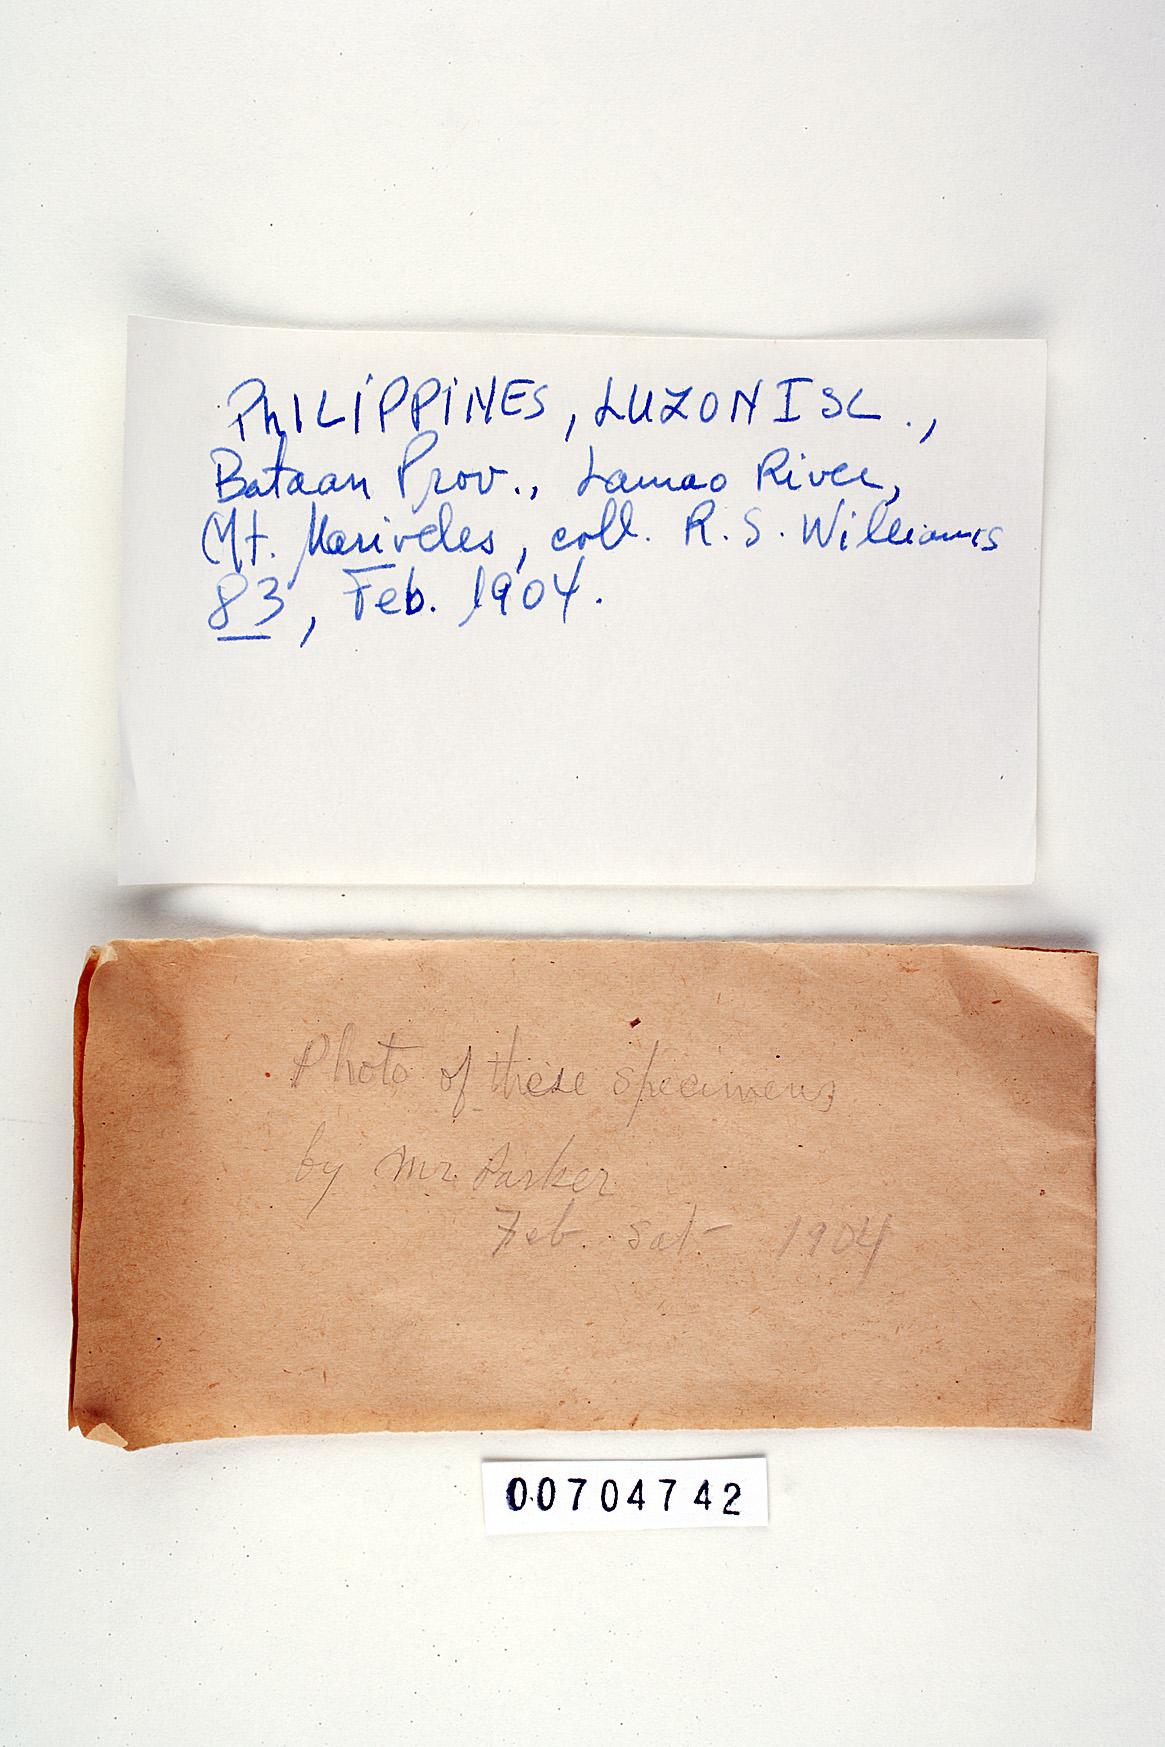 PHILIPPINES, LUZON ISL.,
Bataan Prov., Lamao River,
Mt. Mariveles, coll. R. S. Williams
83, Feb. 1904.
Photo of these specimens
by Mr. Parker
Feb. Sat. 1904
00704742